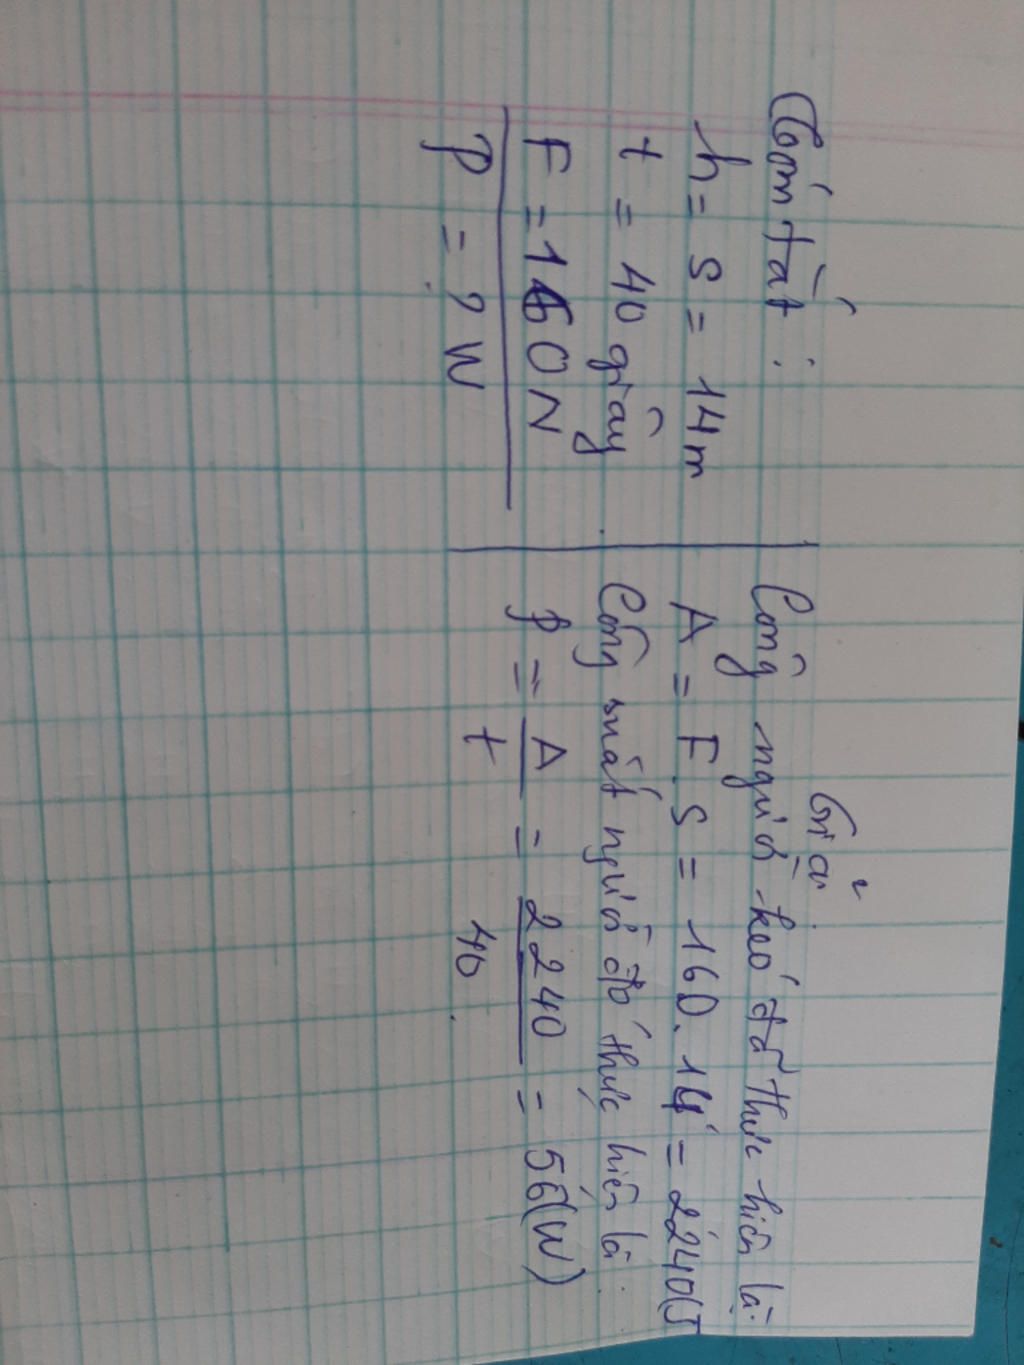 Tóm tắt :
h = s = 14m
t = 40 giây
F = 160N
P = ? W
Giải
Công người kéo đã thực hiện là:
A = F.s = 160.14 = 2240(J
Công suất người đó thực hiện là:
P = A/t = 2240/40 = 56(W)